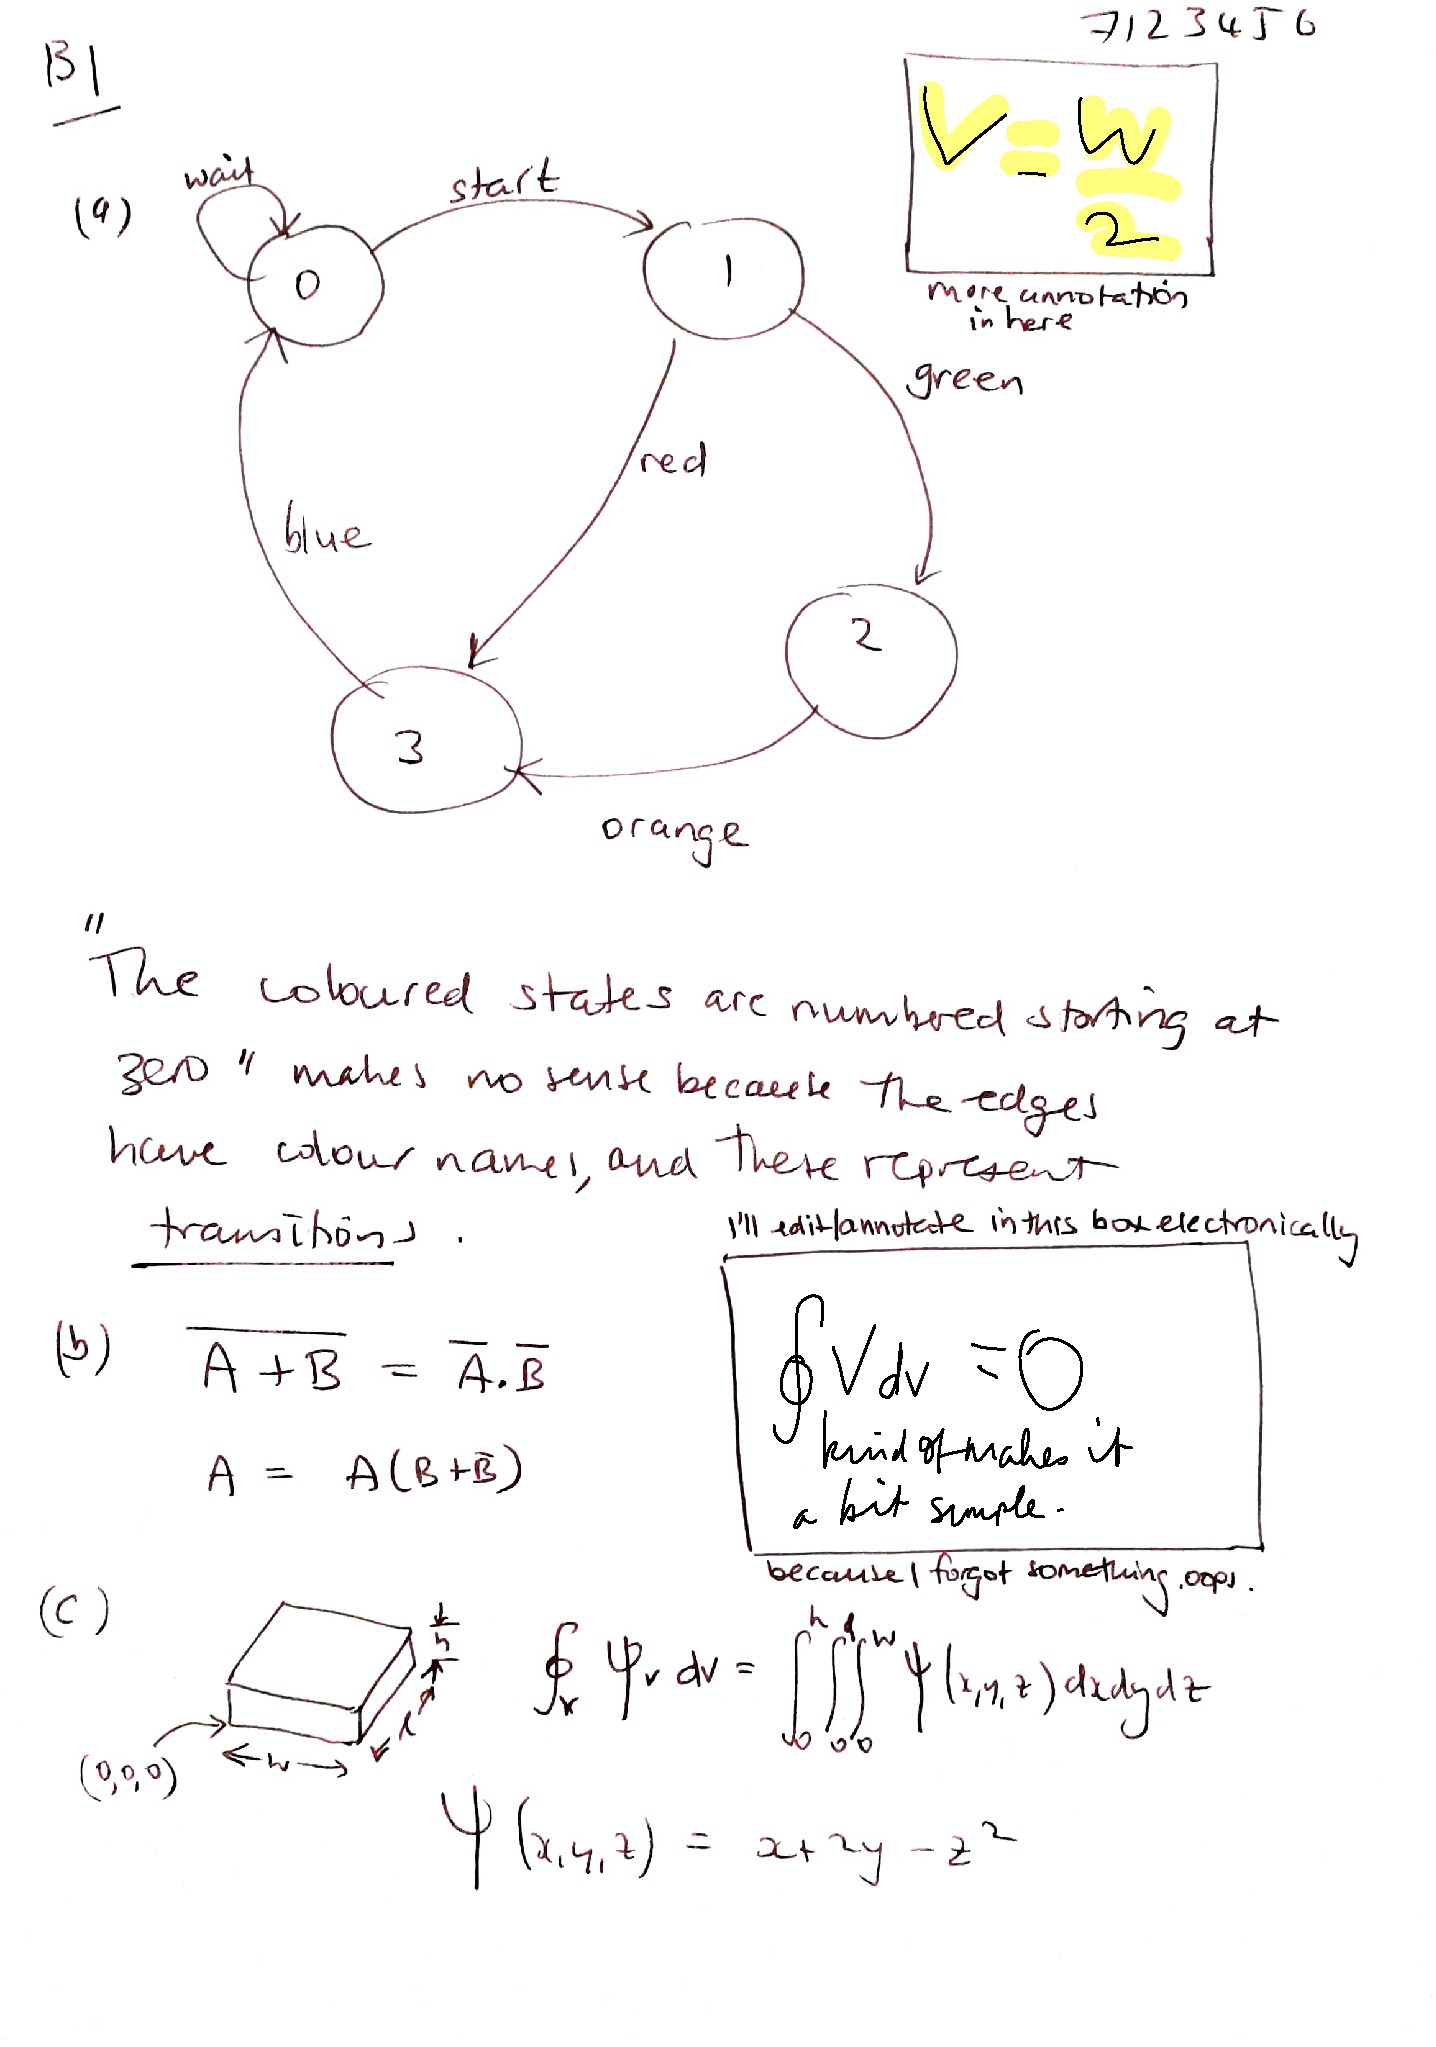 7123456
B1
V = W/2
more annotation
in here
(a)
wait
start
0
1
green
red
blue
2
3
orange
"The coloured states are numbered starting at
zero" makes no sense because the edges
have colour names, and these represent
transitions.
I'll edit/annotate in this box electronically
∮ V dv = 0
kind of makes it
a bit simple.
because I forgot something, oops.
(b)
A̅ ̅+̅ ̅B̅ = A̅.B̅
A = A(B+B̅)
(c)
h
l
w
(0,0,0)
∮v ψv dv = ∫₀ʰ ∫₀ˡ ∫₀ʷ ψ(x,y,z) dx dy dz
ψ(x,y,z) = x + 2y - z²